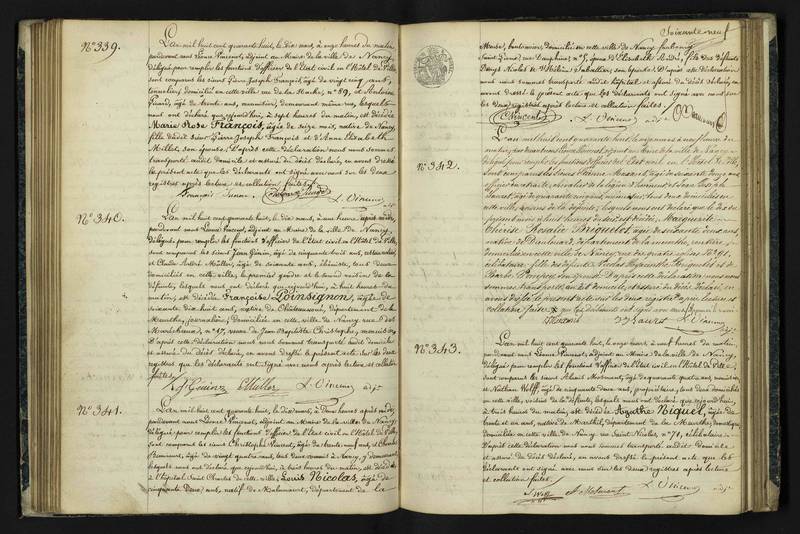 N° 339.
L'an mil huit cent quarante huit, le dix mars, à onze heures du matin,
pardevant nous Léonce Vincent, adjoint au Maire de la ville de Nancy,
délégué pour remplir les fonctions d'officier de l'Etat civil en l'Hôtel de Ville,
sont comparus les sieurs Pierre Joseph François, âgé de vingt cinq ans,
tonnelier, domicilié en cette ville rue de la Hache, n° 89, et Antoine
âgé de trente ans, menuisier, demeurant même rue, lesquels
nous ont déclaré que cejourd'hui, à sept heures du matin, est décédée
Marie Rose François, âgée de seize mois, native de Nancy,
fille dudit sieur Pierre Joseph François et d'Anne Elisabeth
Millet, son épouse. D'après cette déclaration nous nous sommes
transporté audit domicile et assuré du décès déclaré, en avons dressé
le présent acte que les déclarants ont signé avec nous sur les deux
registres après lecture et collation faites.
L. Vincent
N° 340.
L'an mil huit cent quarante huit, le dix mars, à une heure après midi,
pardevant nous Léonce Vincent, adjoint au Maire de la ville de Nancy,
délégué pour remplir les fonctions d'officier de l'Etat civil en l'Hôtel de Ville,
sont comparus les sieurs Jean Guérin, âgé de cinquante huit ans,
et Claude André Muller, âgé de soixante ans, ébéniste, tous deux
domiciliés en cette ville, le premier gendre et le second voisin de la
défunte, lesquels nous ont déclaré que cejourd'hui, à huit heures du
matin, est décédée Françoise Loinsignon, âgée de
soixante dix huit ans, native de département de la
Meurthe, journalière, domiciliée en cette ville de Nancy rue
Maréchaux, n° 17, veuve de Jean Baptiste Christophe,
D'après cette déclaration nous nous sommes transporté audit domicile
et assuré du décès déclaré, en avons dressé le présent acte sur les deux
registres que les déclarants ont signé avec nous après lecture et collation
faites.
Guérin Muller L. Vincent adjt
N° 341.
L'an mil huit cent quarante huit, le dix mars, à deux heures après midi,
pardevant nous Léonce Vincent, adjoint au Maire de la ville de Nancy,
délégué pour remplir les fonctions d'officier de l'Etat civil en l'Hôtel de Ville,
sont comparus les sieurs Christophe Vincent, âgé de trente neuf ans, et Charles
âgé de vingt quatre ans, tous deux à Nancy, y demeurant
lesquels nous ont déclaré que cejourd'hui, à trois heures du matin, est décédé
à l'hôpital Saint Charles de cette ville, Louis Nicolas, âgé de
cinquante deux ans, natif de Malancourt, département de la
Soixante neuf
Meuse, domicilié en cette ville de Nancy faubourg
Saint Pierre, rue n° 5, époux d'Elisabeth fils des défunts
Nicolas et son épouse. D'après cette déclaration
nous nous sommes transporté audit hôpital et assuré du décès déclaré, en
avons dressé le présent acte que les déclarants ont signé avec nous sur
les deux registres après lecture et collation faites.
Vincent L. Vincent adjt
N° 342.
L'an mil huit cent quarante huit, le onze mars, à neuf heures du
matin, pardevant nous Léonce Vincent, adjoint au Maire de la ville de Nancy,
délégué pour remplir les fonctions d'officier de l'Etat civil en l'Hôtel de Ville,
sont comparus les sieurs Etienne âgé de soixante douze ans,
officier en retraite, chevalier de la légion d'honneur et Jean Joseph
âgé de quarante cinq ans, tous deux domiciliés en
cette ville, voisins de la défunte, lesquels nous ont déclaré que le dix du
présent mois à huit heures du soir est décédée Marguerite
Thérèse Rosalie Briquelot, âgée de soixante deux ans,
native de département de la Meurthe, rentière,
domiciliée en cette ville de Nancy, rue des quatre églises N° 91,
célibataire, fille des défunts Nicolas et de
Barbe son épouse. D'après cette déclaration nous nous
sommes transporté audit domicile, et assuré du décès déclaré, en
avons dressé le présent acte sur les deux registres après lecture et
collation faites
L. Vincent adjt
N° 343.
L'an mil huit cent quarante huit, le onze mars, à neuf heures du matin,
pardevant nous Léonce Vincent, adjoint au Maire de la ville de Nancy,
délégué pour remplir les fonctions d'officier de l'Etat civil en l'Hôtel de Ville,
sont comparus les sieurs âgé de quarante quatre ans,
et Nathan Wolff, âgé de cinquante deux ans, propriétaire, tous deux domiciliés
en cette ville, voisins de la défunte, lesquels nous ont déclaré que cejourd'hui,
à trois heures du matin, est décédée Agathe Niquel, âgée de
trente et un ans, native de département de la Meurthe, domestique
domiciliée en cette ville de Nancy, rue Saint Nicolas, n° 71, célibataire.
D'après cette déclaration nous nous sommes transporté audit domicile
et assuré du décès déclaré, en avons dressé le présent acte que les
déclarants ont signé avec nous sur les deux registres après lecture
et collation faites.
Wolff L. Vincent adjt